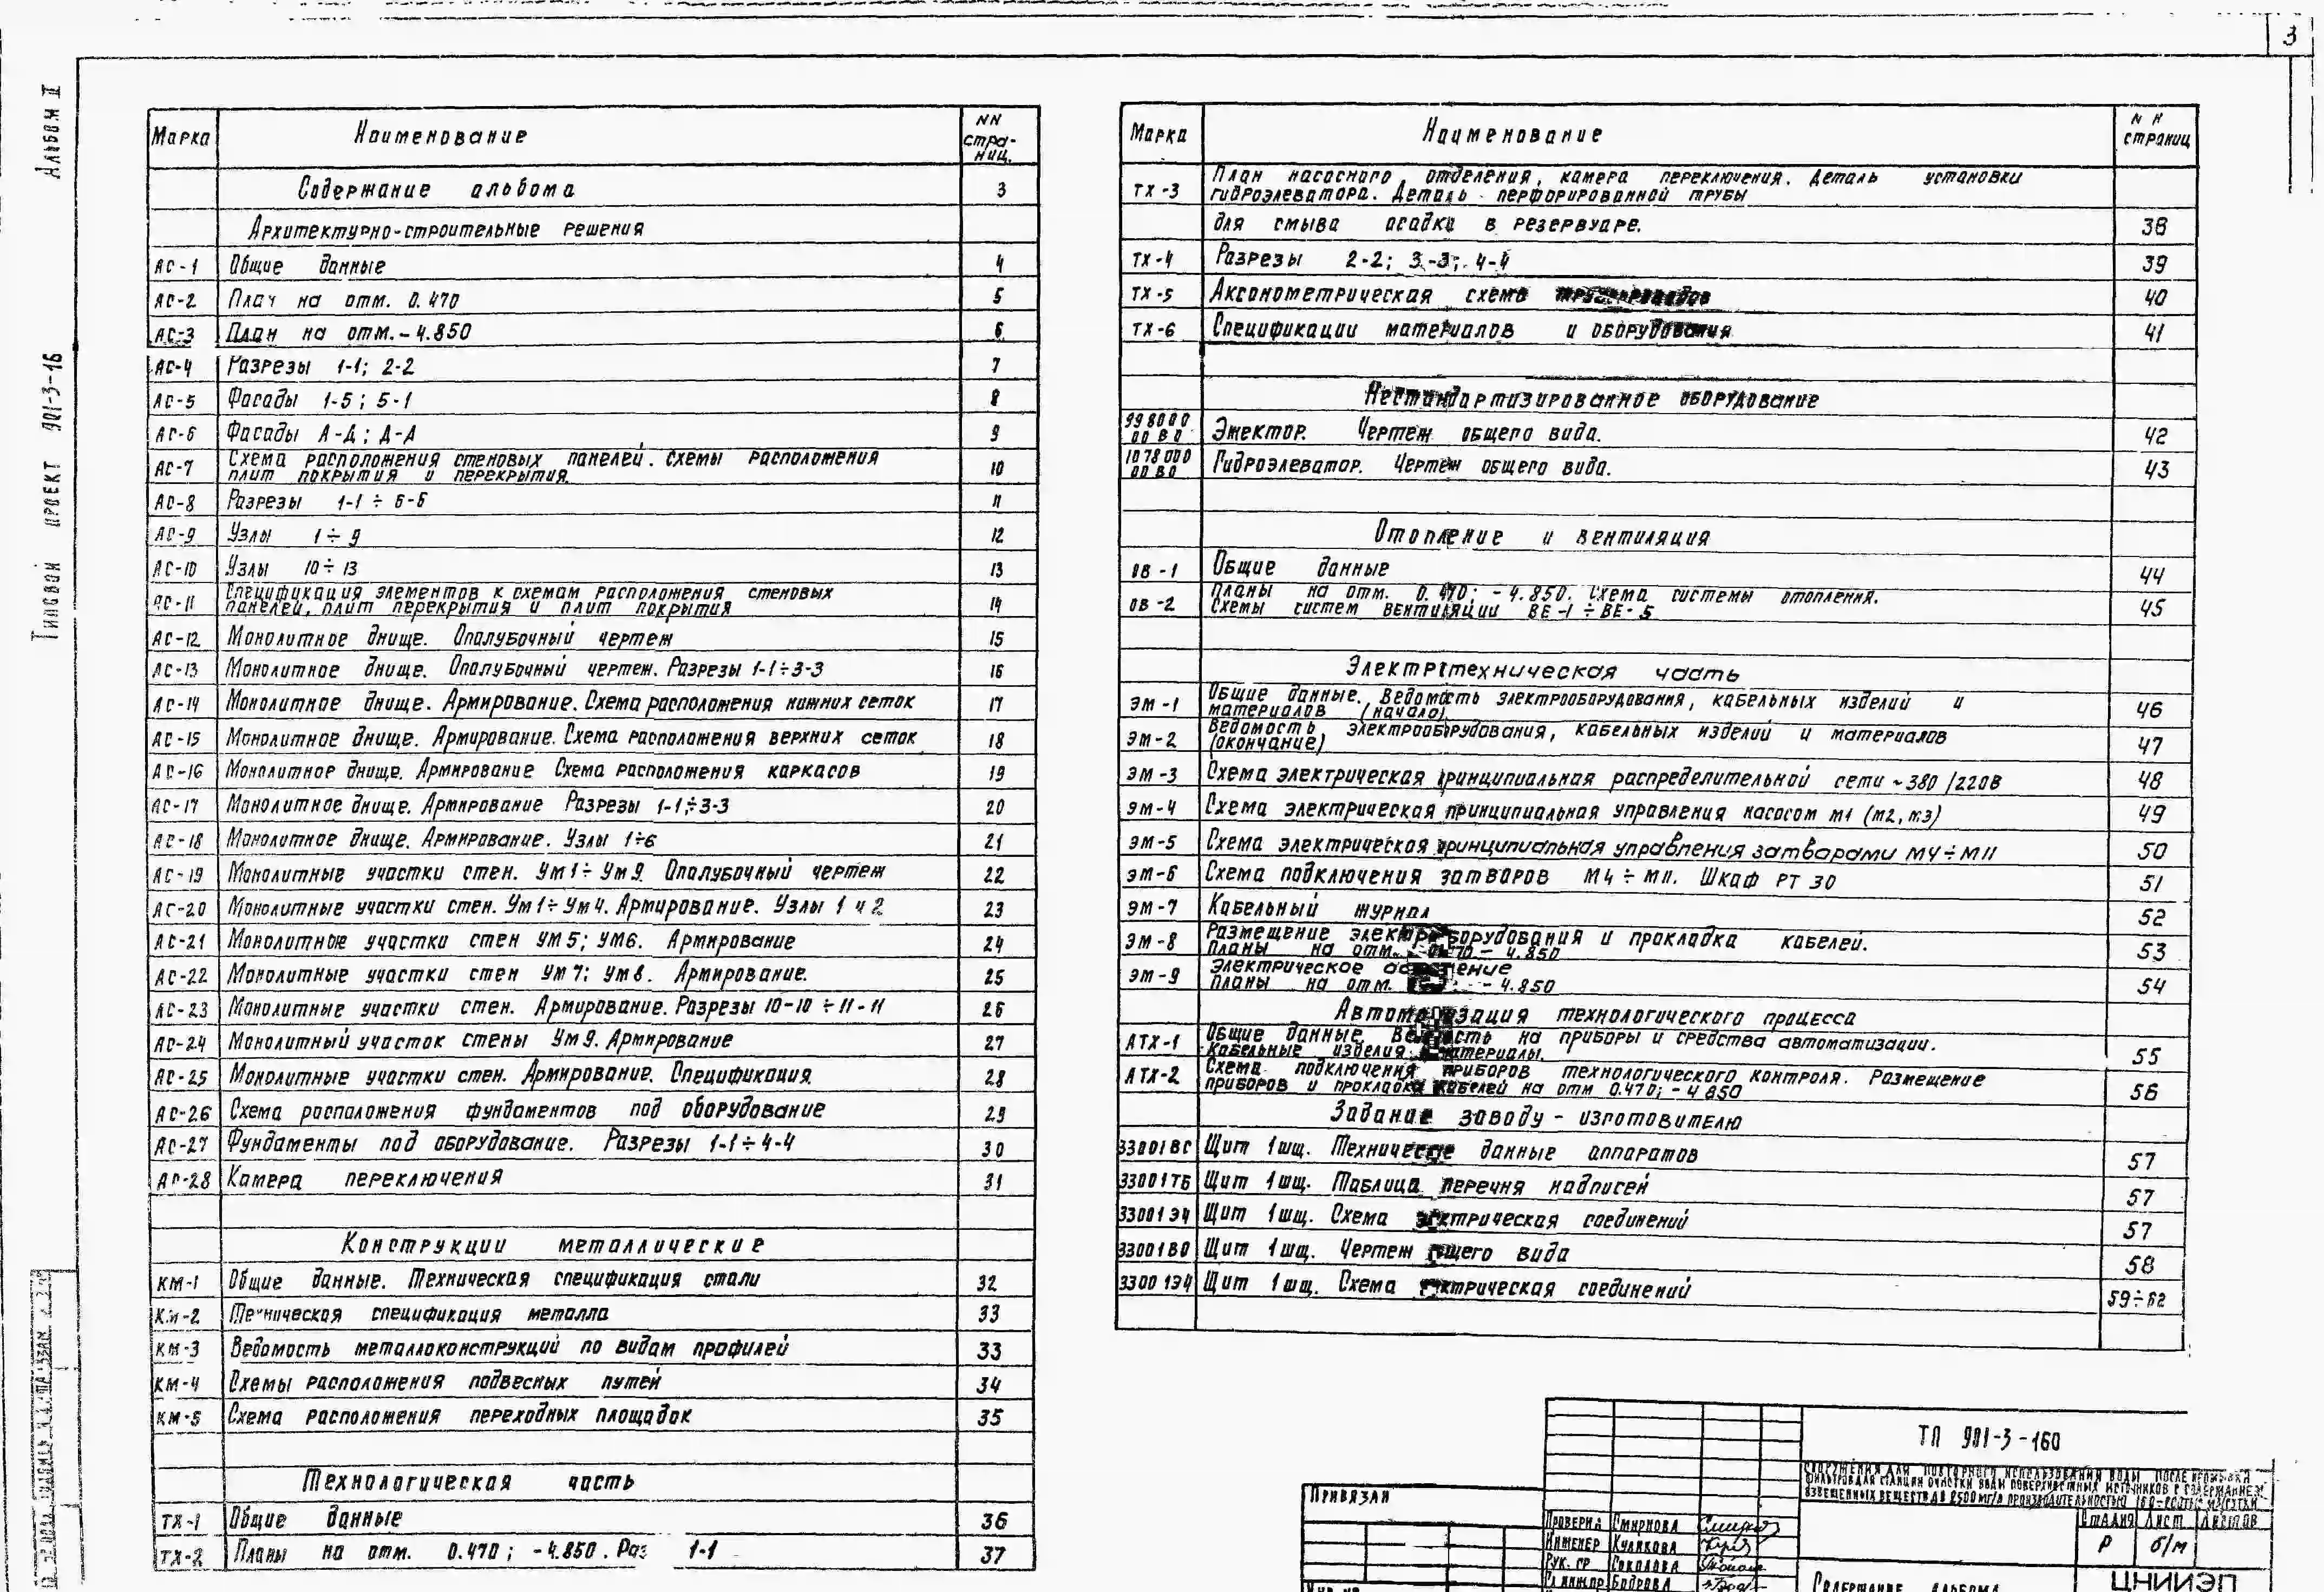 3
Альбом II
Типовой проект 901-3-16
Марка Наименование NN стра-ниц.
Содержание альбома 3
Архитектурно-строительные решения
АС-1 Общие данные 4
АС-2 План на отм. 0.470 5
АС-3 План на отм. - 4.850 6
АС-4 Разрезы 1-1; 2-2 7
АС-5 Фасады 1-5; 5-1 8
АС-6 Фасады А-Д; Д-А 9
АС-7 Схема расположения стеновых панелей. Схемы расположения
плит покрытия и перекрытия. 10
АС-8 Разрезы 1-1 ÷ 6-6 11
АС-9 Узлы 1 ÷ 9 12
АС-10 Узлы 10 ÷ 13 13
АС-11 Спецификация элементов к схемам расположения стеновых
панелей, плит перекрытия и плит покрытия 14
АС-12 Монолитное днище. Опалубочный чертеж 15
АС-13 Монолитное днище. Опалубочный чертеж. Разрезы 1-1÷3-3 16
АС-14 Монолитное днище. Армирование. Схема расположения нижних сеток 17
АС-15 Монолитное днище. Армирование. Схема расположения верхних сеток 18
АС-16 Монолитное днище. Армирование Схема расположения каркасов 19
АС-17 Монолитное днище. Армирование Разрезы 1-1÷3-3 20
АС-18 Монолитное днище. Армирование. Узлы 1÷6 21
АС-19 Монолитные участки стен. Ум1÷Ум9. Опалубочный чертеж 22
АС-20 Монолитные участки стен. Ум1÷Ум4. Армирование. Узлы 1 и 2 23
АС-21 Монолитные участки стен Ум5; Ум6. Армирование 24
АС-22 Монолитные участки стен Ум7; Ум8. Армирование. 25
АС-23 Монолитные участки стен. Армирование. Разрезы 10-10 ÷ 11-11 26
АС-24 Монолитный участок стены Ум9. Армирование 27
АС-25 Монолитные участки стен. Армирование. Спецификация. 28
АС-26 Схема расположения фундаментов под оборудование 29
АС-27 Фундаменты под оборудование. Разрезы 1-1÷4-4 30
АС-28 Камера переключения 31
Конструкции металлические
КМ-1 Общие данные. Техническая спецификация стали 32
КМ-2 Техническая спецификация металла 33
КМ-3 Ведомость металлоконструкций по видам профилей 33
КМ-4 Схемы расположения подвесных путей 34
КМ-5 Схема расположения переходных площадок 35
Технологическая часть
ТХ-1 Общие данные 36
ТХ-2 Планы на отм. 0.470; -4.850. Раз 1-1 37
Марка Наименование NN страниц
ТХ-3 План насосного отделения, камера переключения. Деталь установки
гидроэлеватора. Деталь перфорированной трубы
для смыва осадка в резервуаре. 38
ТХ-4 Разрезы 2-2; 3-3; 4-4 39
ТХ-5 Аксонометрическая схема трубопроводов 40
ТХ-6 Спецификации материалов и оборудования 41
Нестандартизированное оборудование
998000 00 ВО Эжектор. Чертеж общего вида. 42
1078000 00 ВО Гидроэлеватор. Чертеж общего вида. 43
Отопление и вентиляция
ОВ-1 Общие данные 44
ОВ-2 Планы на отм. 0.470; -4.850. Схема системы отопления.
Схемы систем вентиляции ВЕ-1 ÷ ВЕ-5 45
Электротехническая часть
ЭМ-1 Общие данные. Ведомость электрооборудования, кабельных изделий и
материалов (начало) 46
ЭМ-2 Ведомость электрооборудования, кабельных изделий и материалов
(окончание) 47
ЭМ-3 Схема электрическая принципиальная распределительной сети ~380/220В 48
ЭМ-4 Схема электрическая принципиальная управления насосом М1 (М2, М3) 49
ЭМ-5 Схема электрическая принципиальная управления затворами М4÷М11 50
ЭМ-6 Схема подключения затворов М4 ÷ М11. Шкаф РТ 30 51
ЭМ-7 Кабельный журнал 52
ЭМ-8 Размещение электрооборудования и прокладка кабелей.
Планы на отм. 0.470 - 4.850 53
ЭМ-9 Электрическое освещение
Планы на отм. - 4.850 54
Автоматизация технологического процесса
АТХ-1 Общие данные. Ведомость на приборы и средства автоматизации.
Кабельные изделия. Материалы. 55
АТХ-2 Схема подключения приборов технологического контроля. Размещение
приборов и прокладка кабелей на отм 0.470; - 4 850 56
Задание заводу - изготовителю
33001ВС Щит 1шщ. Технические данные аппаратов 57
33001ТБ Щит 1шщ. Таблица перечня надписей 57
33001Э4 Щит 1шщ. Схема электрическая соединений 57
33001ВО Щит 1шщ. Чертеж общего вида 58
33001Э4 Щит 1шщ. Схема электрическая соединений 59÷62
ТП 901-3-160
Сооружения для повторного использования воды после промывки
фильтров для станции очистки воды поверхностных источников с содержанием
взвешенных веществ до 2500 мг/л производительностью
Привязан
Проверил Смирнова
Инженер Куликова
Рук. гр Соколова
Гл инж.пр. Бодрова
Стадия Лист Листов
Р б/м
Содержание альбома
ЦНИИЭП